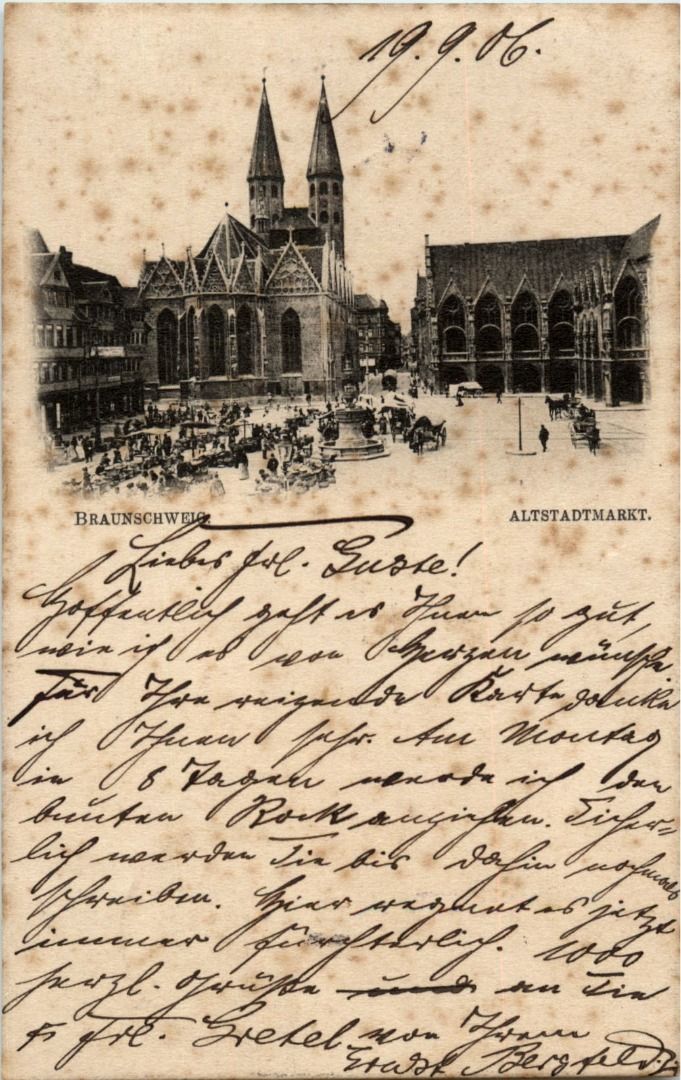 19.9.06.
BRAUNSCHWEIG.
ALTSTADTMARKT.
Liebes Frl. Guste!
Hoffentlich geht es Ihnen so gut,
wie ich es von Herzen wünsche
Für Ihre reizende Karte danke
ich Ihnen sehr. Am Montag
in 8 Tagen werde ich den
bunten Rock anziehen. Sicher-
lich werden Sie bis dahin nochmals
schreiben. Hier regnet es jetzt
immer fürchterlich. 1000
herzl. Grüße und an Sie
Frl. Gretel von Ihrem
Ernst Bergfeld